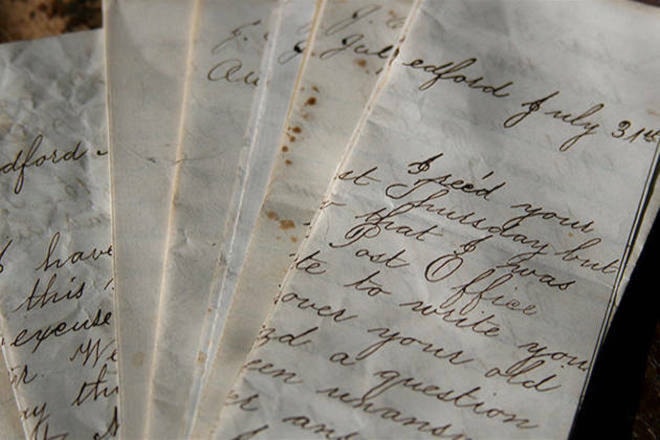 dford
have
this
excuse
We
J.
Au
J.
July
edford July 31st
I rec'd your
st Thursday but
that I was
Post Office
te to write you
over your old
zd a question
een unansw
er an